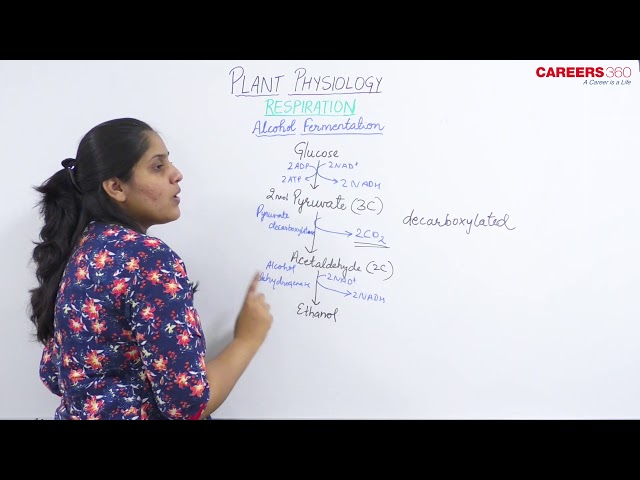 CAREERS360
A Career is a Life
PLANT PHYSIOLOGY
RESPIRATION
Alcohol Fermentation
Glucose
2ADP 2NAD+
2ATP 2NADH
2mol Pyruvate (3C)
Pyruvate
decarboxylase 2CO2
decarboxylated
Acetaldehyde (2C)
Alcohol 2NAD+
dehydrogenase 2NADH
Ethanol